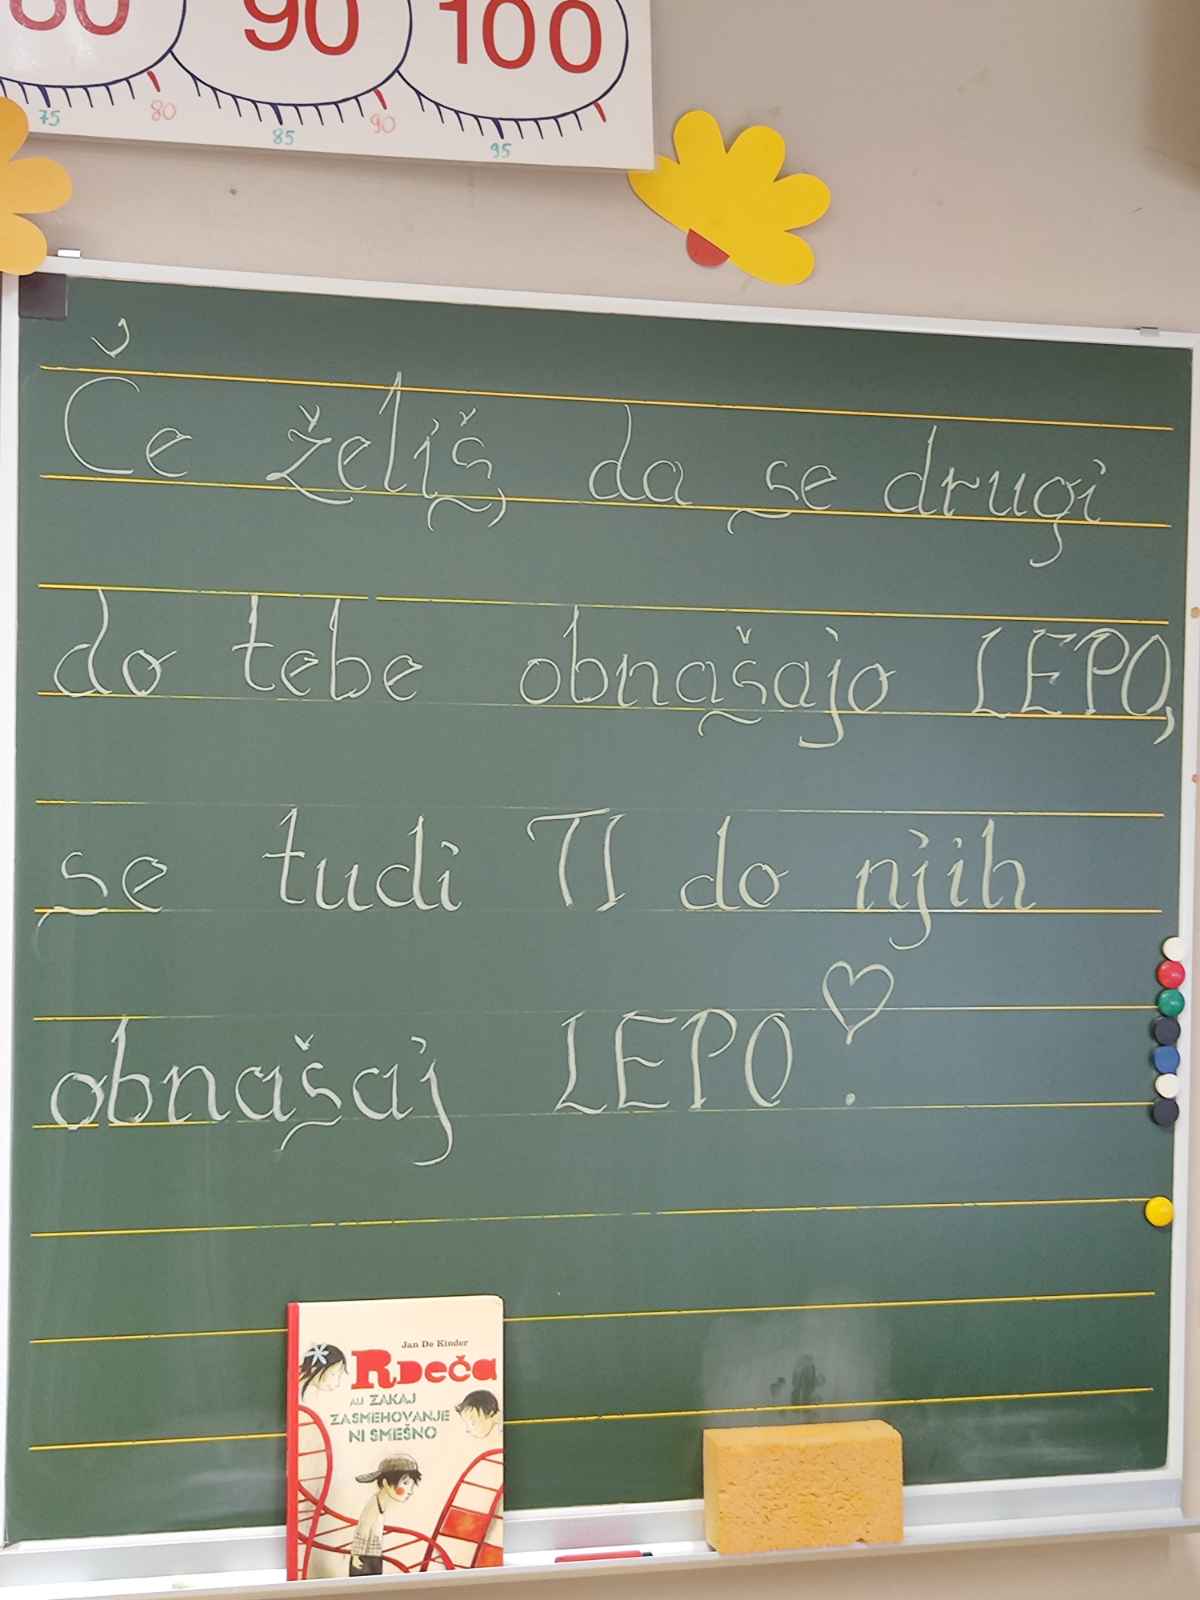 90
100
75
80
85
90
95
Če želiš, da se drugi
do tebe obnašajo LEPO,
se tudi TI do njih
obnašaj LEPO!
Jan De Kinder
RDEČA
ALI ZAKAJ
ZASMEHOVANJE
NI SMEŠNO